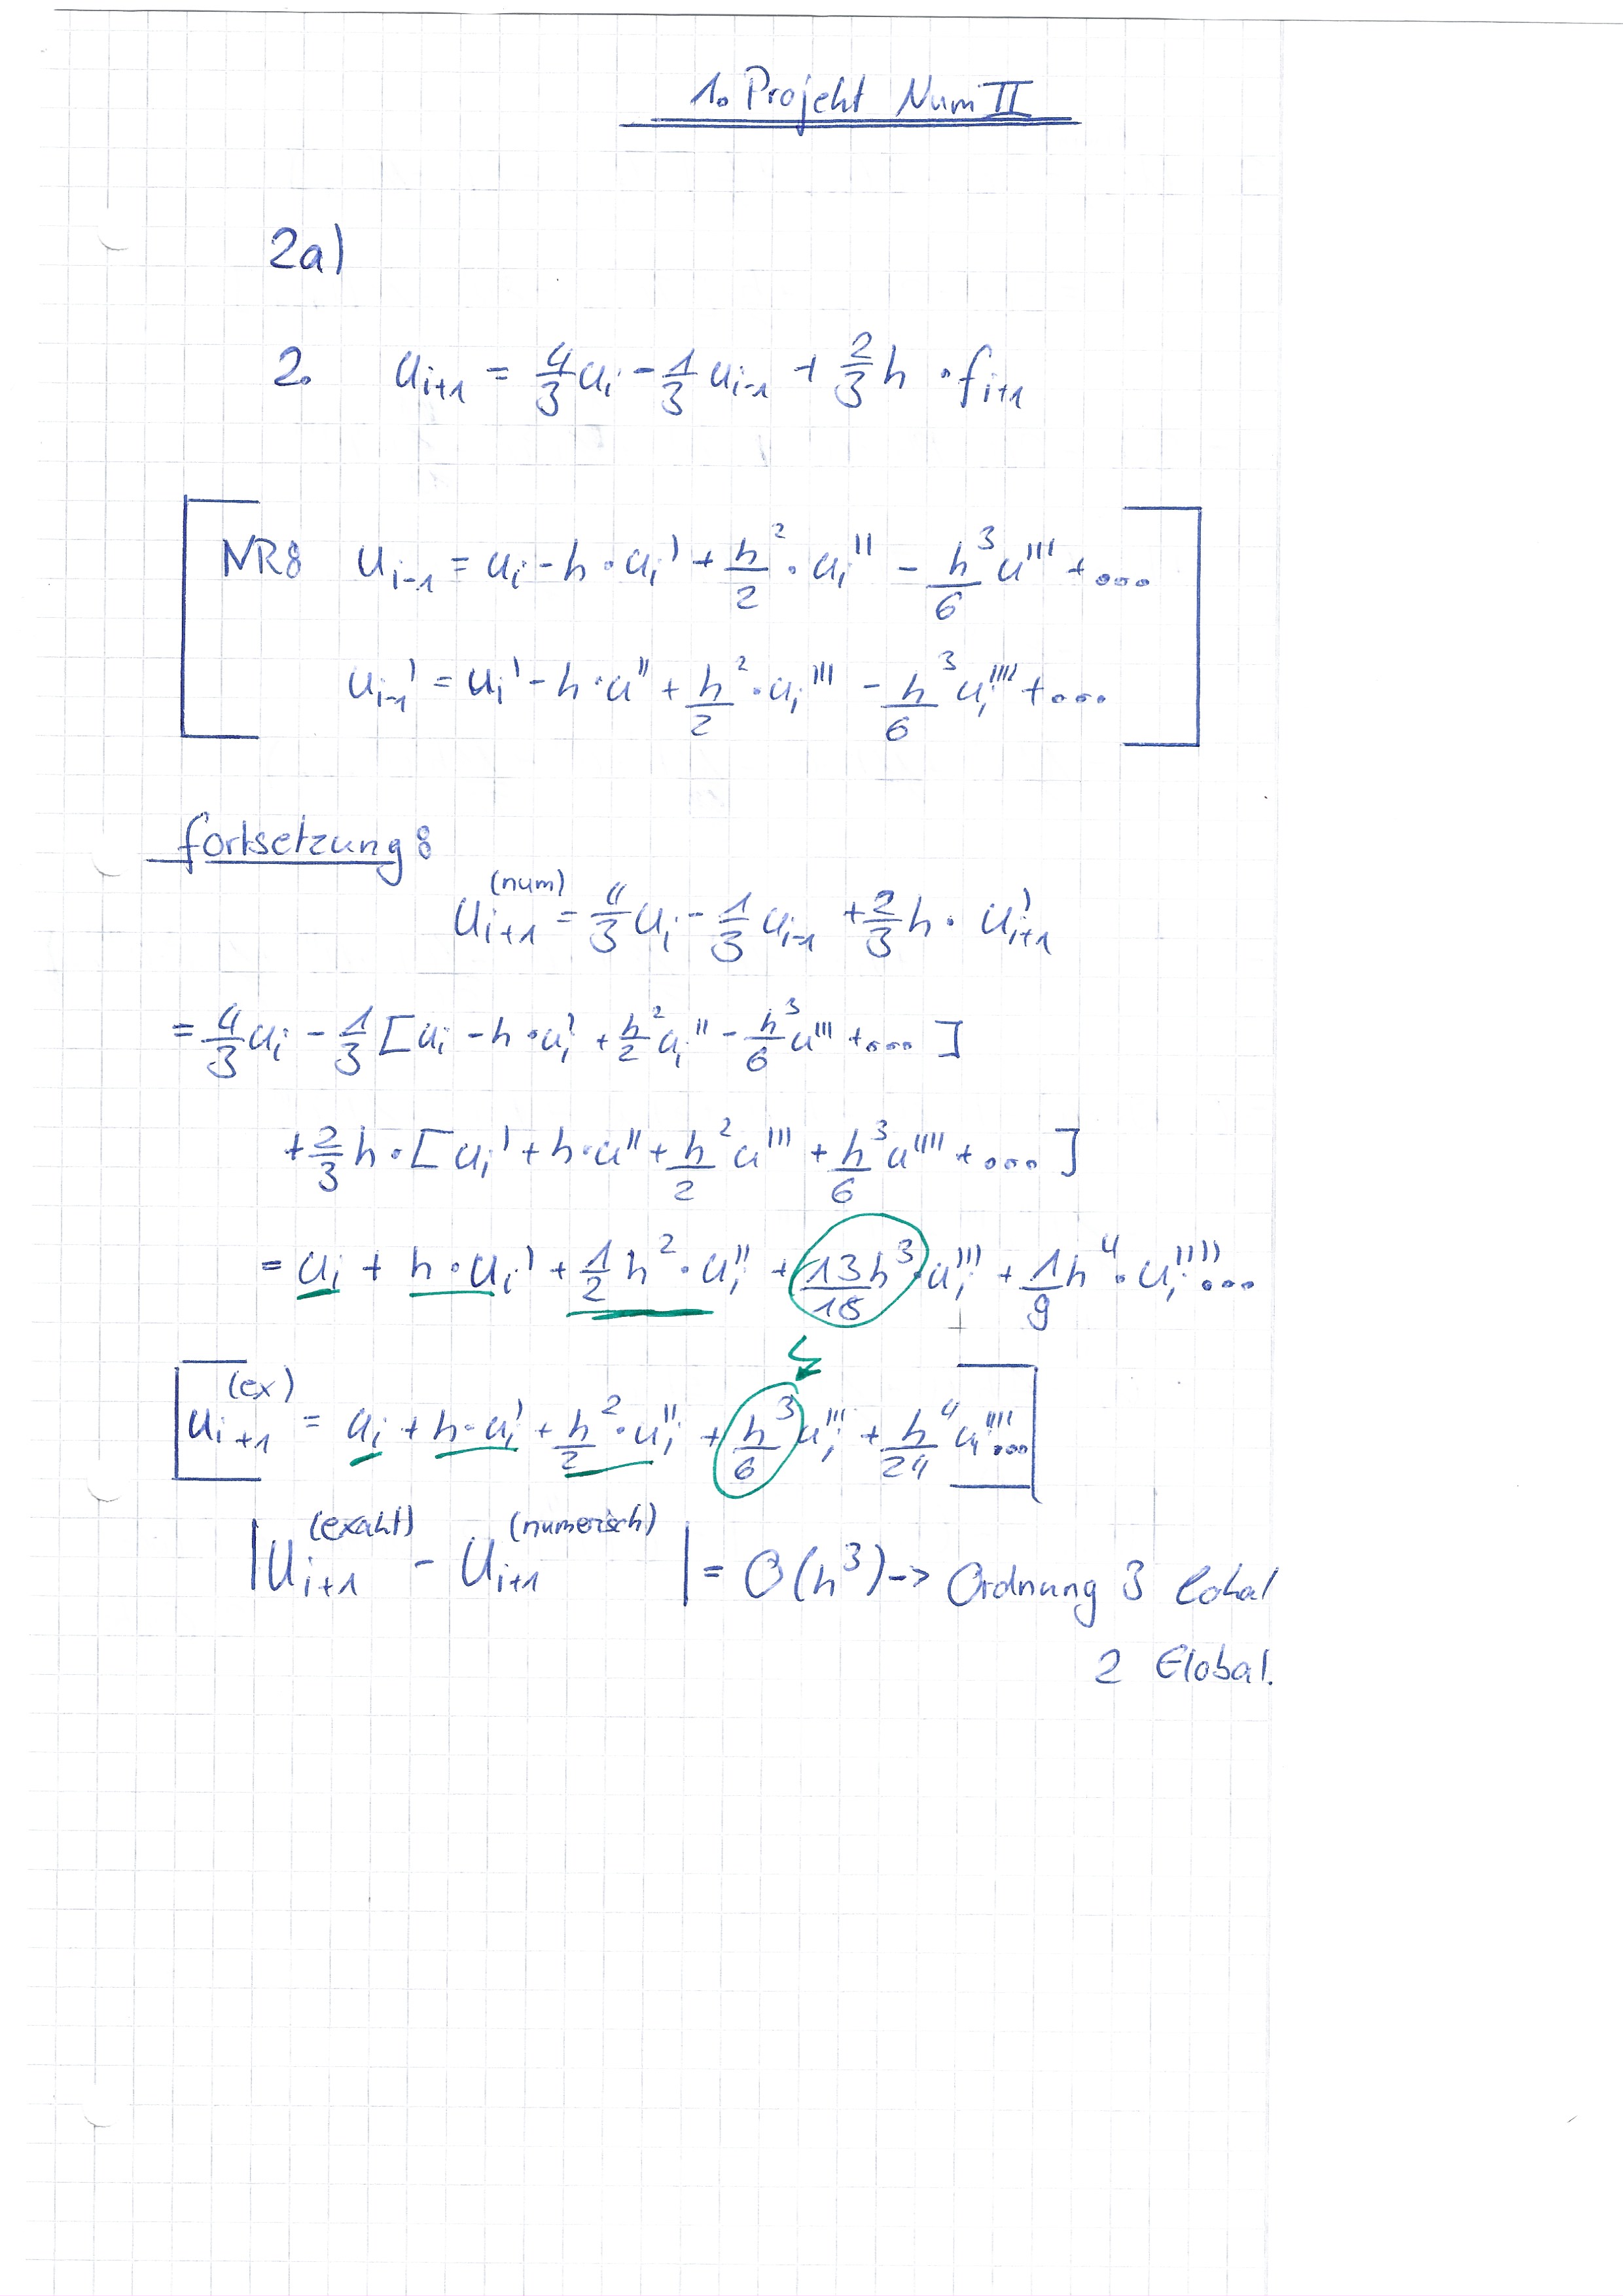 1. Projekt Num II
2a)
2. u_{i+1} = 4/3 u_i - 1/3 u_{i-1} + 2/3 h · f_{i+1}
NR: u_{i-1} = u_i - h · u_i' + h²/2 · u_i'' - h³/6 u''' + ...
u_{i-1}' = u_i' - h · u'' + h²/2 · u_i''' - h³/6 u_i'''' + ...
Fortsetzung:
u_{i+1}^{(num)} = 4/3 u_i - 1/3 u_{i-1} + 2/3 h · u_{i+1}'
= 4/3 u_i - 1/3 [u_i - h · u_i' + h²/2 u_i'' - h³/6 u''' + ...]
+ 2/3 h · [u_i' + h · u'' + h²/2 u''' + h³/6 u'''' + ...]
= u_i + h · u_i' + 1/2 h² · u_i'' + 13h³/18 · u_i''' + 1/9 h⁴ · u_i'''' ...
u_{i+1}^{(ex)} = u_i + h · u_i' + h²/2 · u_i'' + h³/6 u_i''' + h⁴/24 u_i'''' ...
|u_{i+1}^{(exakt)} - u_{i+1}^{(numerisch)}| = O(h³) -> Ordnung 3 lokal
2 Global.